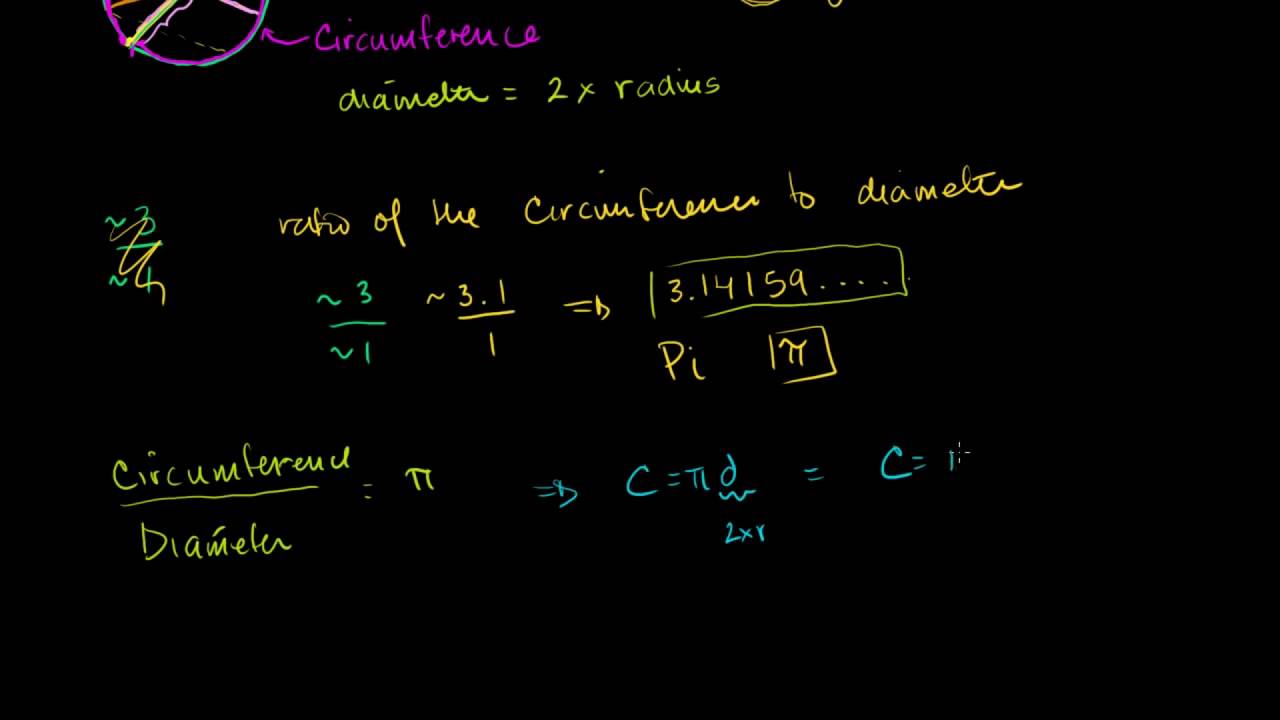 Circumference
diameter = 2 x radius
ratio of the circumference to diameter
~3
~1
~3
~1
~3.1
1
⇒ 3.14159....
Pi π
Circumference
Diameter
= π ⇒ C = πd = C =
2xr